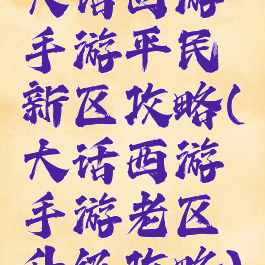 大话西游
手游平民
新区攻略(
大话西游
手游老区
升级攻略)